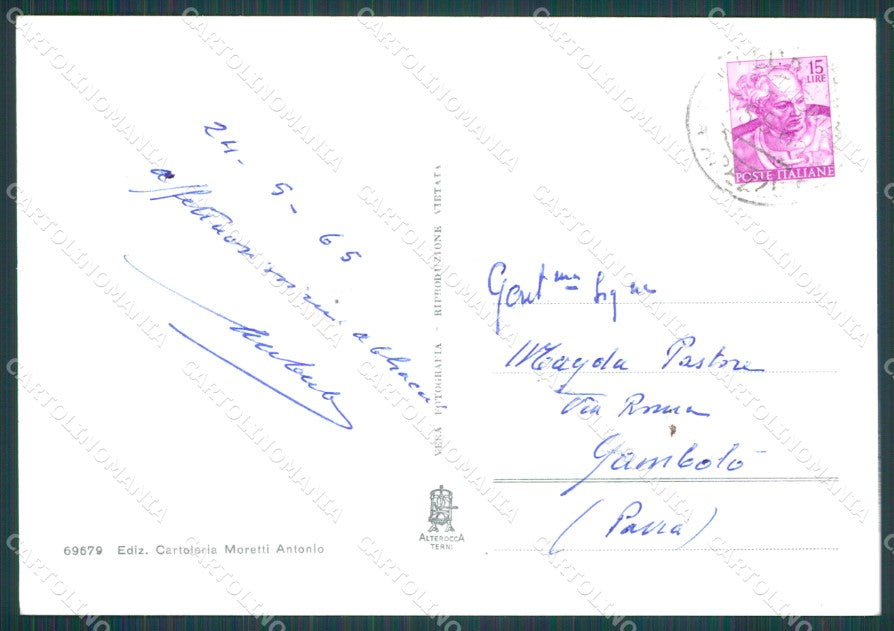 15
LIRE
POSTE ITALIANE
24-5-65
affettuosissimi abbracci
Gent.ma Sig.na
Magda Pastore
Via Roma
Gambolò
(Pavia)
VERA FOTOGRAFIA - RIPRODUZIONE VIETATA
ALTEROCCA
TERNI
69679 Ediz. Cartoleria Moretti Antonio
CARTOLINOMANIA